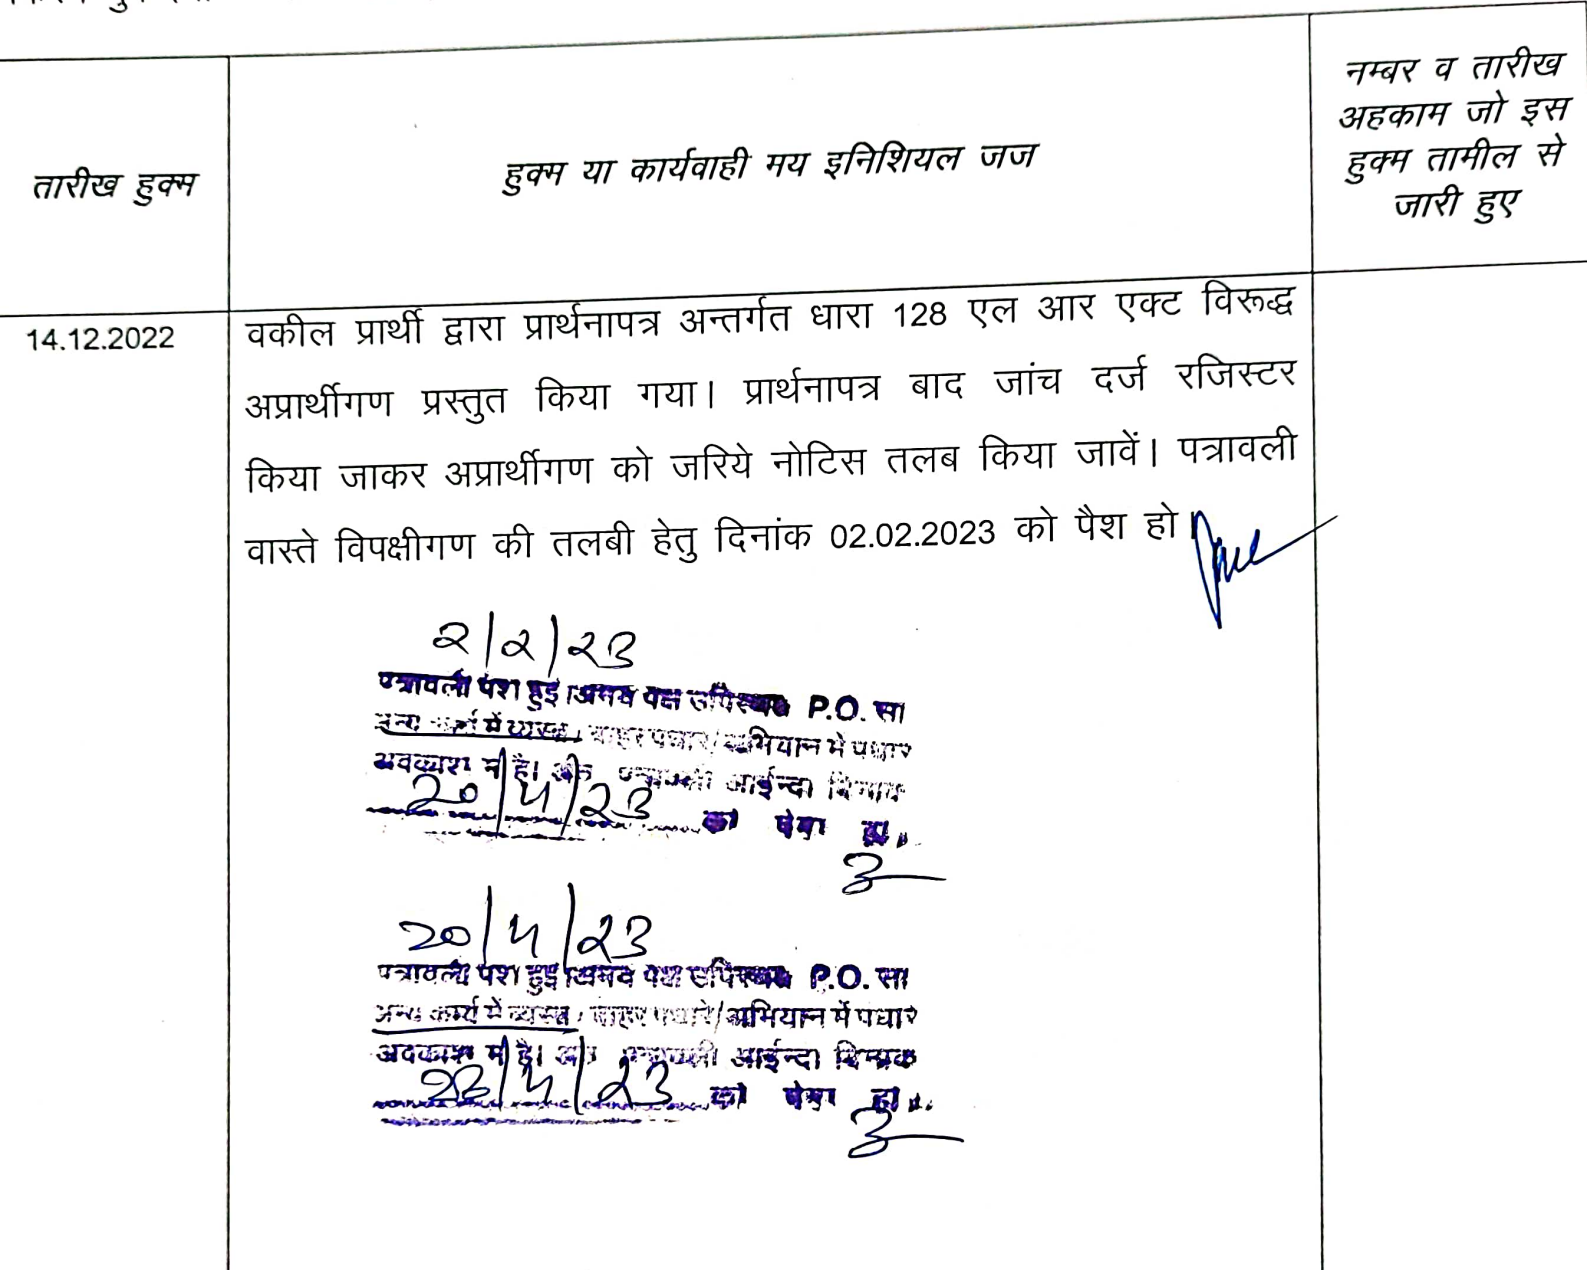 तारीख हुक्म
हुक्म या कार्यवाही मय इनिशियल जज
नम्बर व तारीख
अहकाम जो इस
हुक्म तामील से
जारी हुए
14.12.2022
वकील प्रार्थी द्वारा प्रार्थनापत्र अन्तर्गत धारा 128 एल आर एक्ट विरूद्ध
अप्रार्थीगण प्रस्तुत किया गया। प्रार्थनापत्र बाद जांच दर्ज रजिस्टर
किया जाकर अप्रार्थीगण को जरिये नोटिस तलब किया जावें। पत्रावली
वास्ते विपक्षीगण की तलबी हेतु दिनांक 02.02.2023 को पैश हो।
2/2/23
पत्रावली पेश हुई। उभय पक्ष उपस्थित P.O. सा
अन्य कार्य में व्यस्त, बाहर पधारे/अभियान में पधारे
अवकाश में है। अतः पत्रावली आईन्दा दिनांक
20/4/23 को पेश हो।
20/4/23
पत्रावली पेश हुई। उभय पक्ष उपस्थित P.O. सा
अन्य कार्य में व्यस्त, बाहर पधारे/अभियान में पधारे
अवकाश में है। अतः पत्रावली आईन्दा दिनांक
/4/23 को पेश हो।